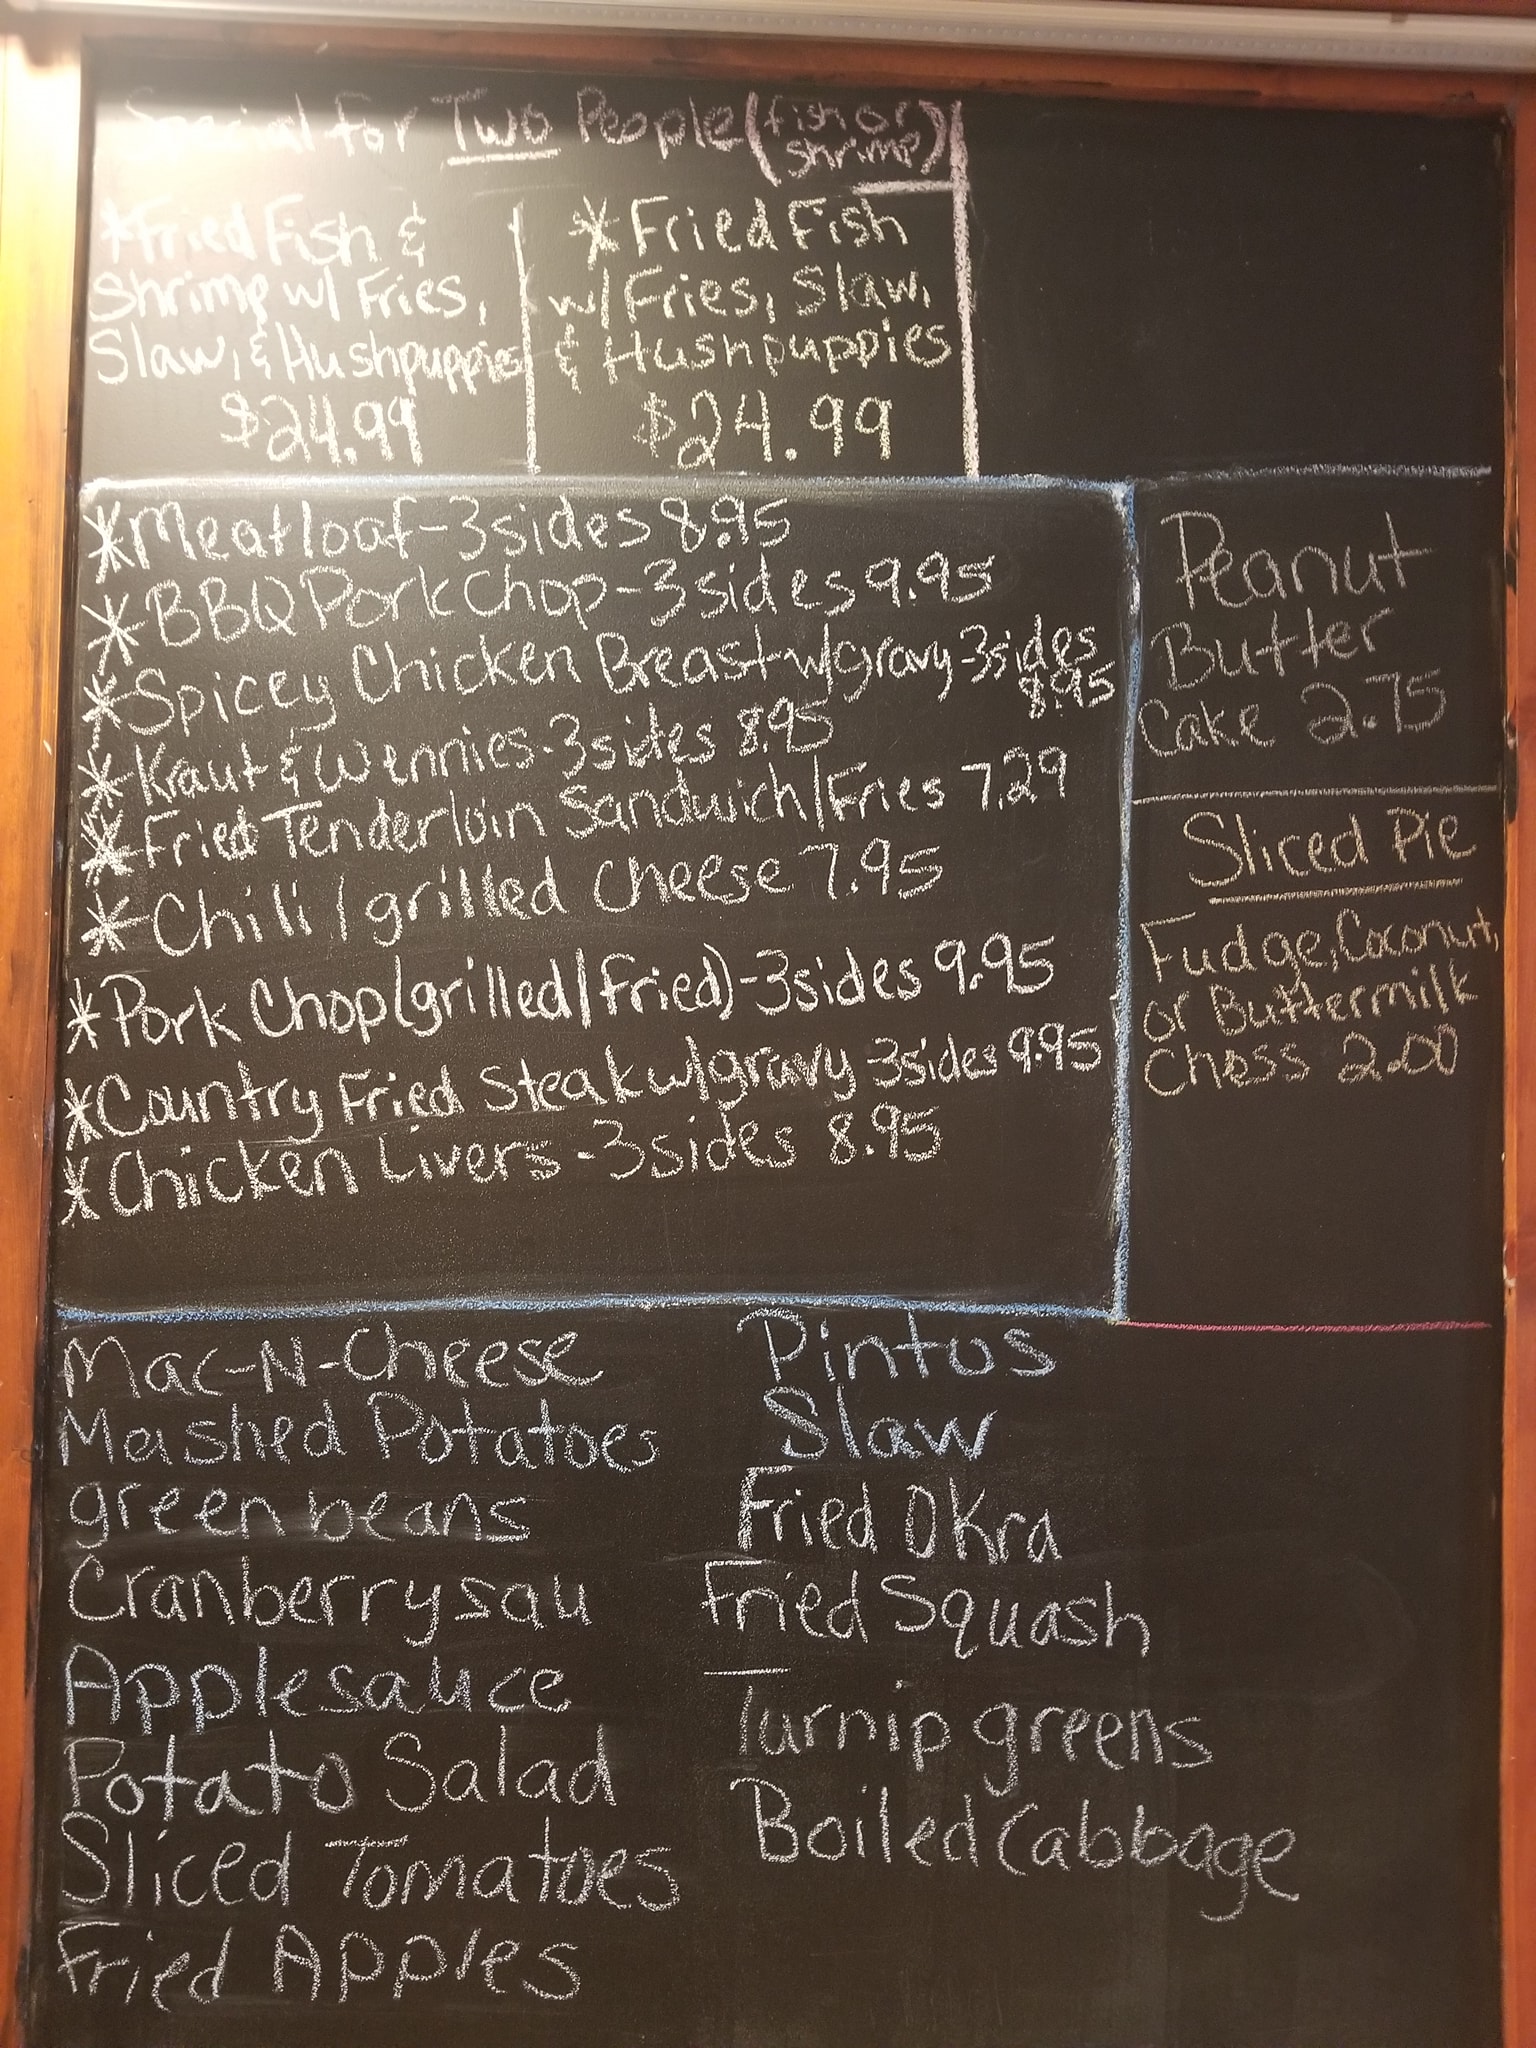 Special for Two People (fish or shrimp)
*Fried Fish &
Shrimp w/ Fries,
Slaw, & Hushpuppies
$24.99
*Fried Fish
w/ Fries, Slaw,
& Hushpuppies
$24.99
*Meatloaf-3sides 8.95
*BBQ Pork Chop-3sides 9.95
*Spicey Chicken Breast w/gravy-3sides
8.95
*Kraut & Wennies-3sides 8.95
*Fried Tenderloin Sandwich/Fries 7.29
*Chili/grilled Cheese 7.95
*Pork Chop(grilled/Fried)-3sides 9.95
*Country Fried Steak w/gravy 3sides 9.95
*Chicken Livers-3sides 8.95
Peanut
Butter
Cake 2.75
Sliced Pie
Fudge, Coconut,
or Buttermilk
Chess 2.00
Mac-N-Cheese
Mashed Potatoes
green beans
Cranberry sau
Applesauce
Potato Salad
Sliced Tomatoes
Fried Apples
Pintos
Slaw
Fried Okra
Fried Squash
Turnip greens
Boiled Cabbage